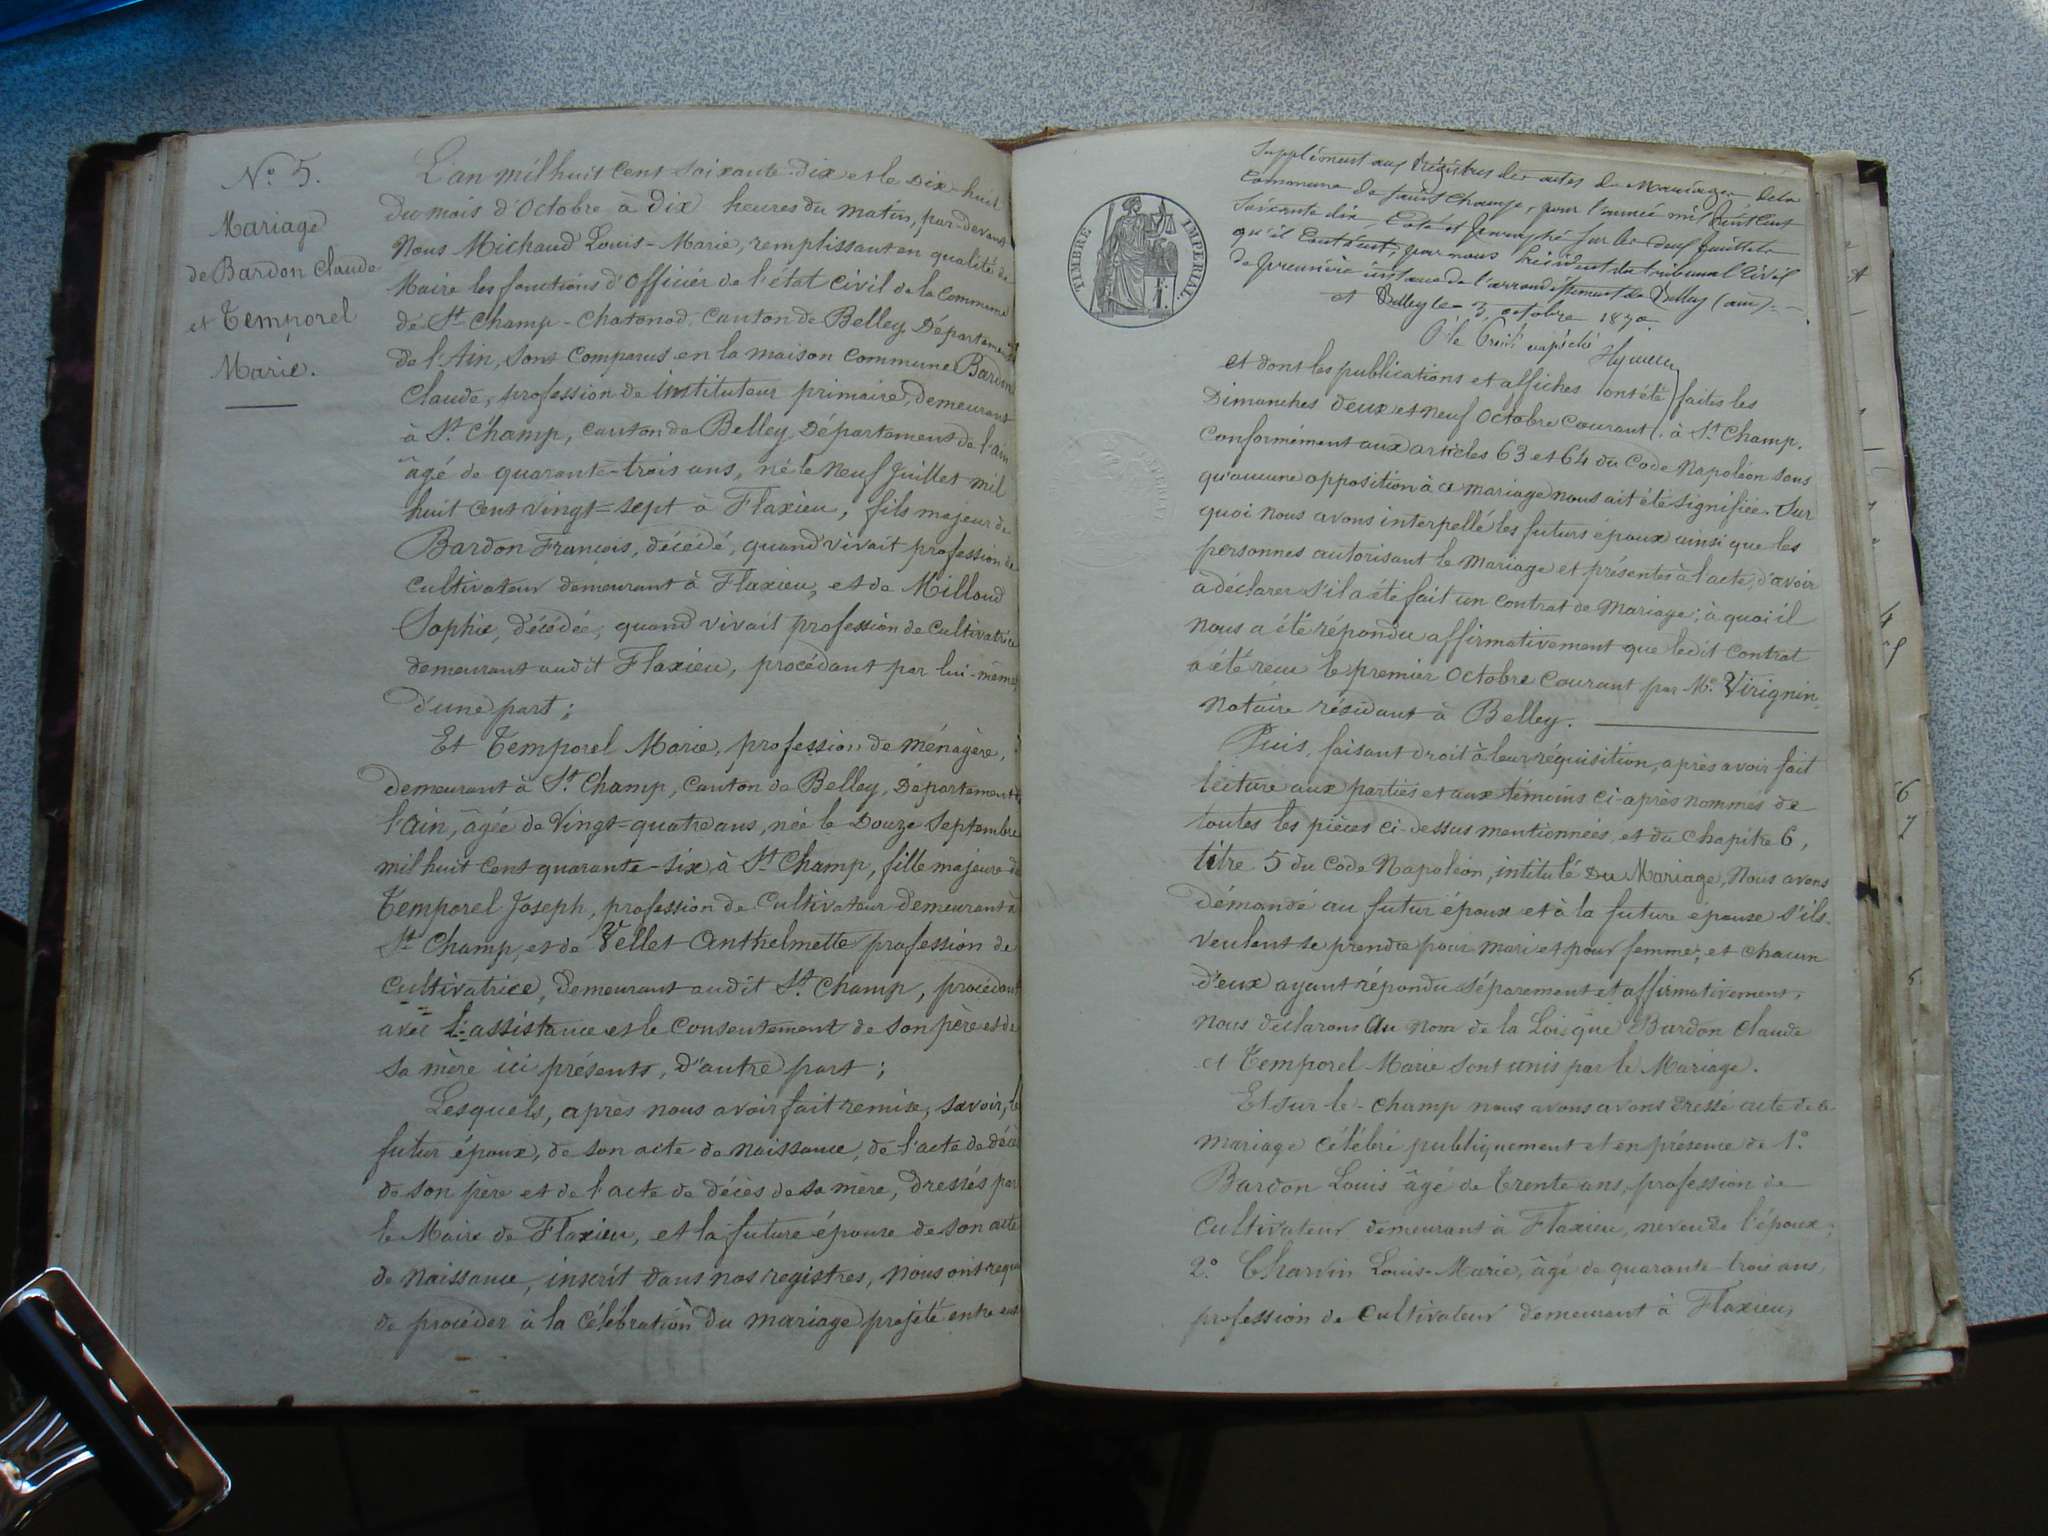 N.° 5.
Mariage
de Bardon Claude
et Temporel
Marie.
L'an mil huit cent soixante-dix et le Dix-huit
du mois d'Octobre à Dix heures du matin, par-devant
Nous Michaud Louis-Marie, remplissant en qualité de
Maire les fonctions d'Officier de l'état civil de la Commune
de St Champ-Chatonod, Canton de Belley, Département
de l'Ain, sont comparus en la maison commune Bardon
Claude, profession de instituteur primaire, demeurant
à St Champ, canton de Belley, Département de l'ain
âgé de quarante-trois ans, né le Neuf Juillet mil
huit cent vingt-sept à Flaxieu, fils majeur de
Bardon François, décédé, quand vivait profession de
cultivateur demeurant à Flaxieu, et de Milloud
Sophie, décédée, quand vivait profession de Cultivatrice
demeurant audit Flaxieu, procédant par lui-même,
d'une part;
Et Temporel Marie, profession de ménagère,
demeurant à St Champ, Canton de Belley, Département
l'Ain, âgée de Vingt-quatre ans, née le Douze Septembre
mil huit cent quarante-six à St Champ, fille majeure de
Temporel Joseph, profession de Cultivateur demeurant à
St Champ, et de Vellet Anthelmette profession de
Cultivatrice, demeurant audit St Champ, procédant
avec l'assistance et le Consentement de son père et de
sa mère ici présents, d'autre part;
Lesquels, après nous avoir fait remise, savoir, le
futur époux, de son acte de naissance, de l'acte de décès
de son père et de l'acte de décès de sa mère, dressés par
le Maire de Flaxieu, et la future épouse de son acte
de Naissance, inscrit dans nos registres, Nous ont requis
de procéder à la Célébration du mariage projeté entre eux
TIMBRE IMPERIAL.
Supplément aux Régistres des actes de Mariages de la
Commune de Saint Champ, pour l'année mil huit cent
Soixante dix, Coté et Paraphé sur les deux feuillets
qu'il Contient, par nous Président du tribunal Civil
de première instance de l'arrondissement de Belley (ain)
et Belley le 3 octobre 1870.
P. le Présit empêché
et dont les publications et affiches ont été faites les
Dimanches deux et neuf Octobre Courant, à St Champ.
Conformément aux articles 63 et 64 du Code Napoléon sans
qu'aucune opposition à ce mariage nous ait été signifiée. Sur
quoi nous avons interpellé les futurs époux ainsi que les
personnes autorisant le Mariage et présentes à l'acte, d'avoir
a déclarer s'il a été fait un contrat de Mariage; à quoi il
nous a été répondu affirmativement que ledit Contrat
a été recu le premier Octobre Courant par Me. Virignin,
Notaire résidant à Belley.
Puis, faisant droit à leur réquisition, après avoir fait
lecture aux parties et aux témoins ci-après nommés de
toutes les pièces ci-dessus mentionnées, et du Chapitre 6,
titre 5 du Code Napoléon, intitulé Du Mariage, Nous avons
démandé au futur époux et à la future épouse s'ils
veulent se prendre pour mari et pour femme, et chacun
d'eux ayant répondu séparement et affirmativement,
nous declarons au nom de la Loi que Bardon Claude
et Temporel Marie sont unis par le Mariage.
Et sur-le-champ nous avons avons dressé acte de ce
mariage célébré publiquement et en présence de 1.°
Bardon Louis âgé de Trente ans, profession de
Cultivateur demeurant à Flaxieu, neveu de l'époux,
2.° Charvin Louis-Marie, âgé de quarante-trois ans,
profession de Cultivateur demeurant à Flaxieu,